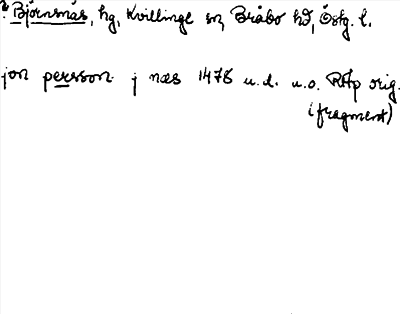 ? Björnsnäs, hg, Kvillinge sn, Bråbo hd, Östg. l.
jon persson j næs 1478 u.d. u.o. RAp orig.
(fragment)